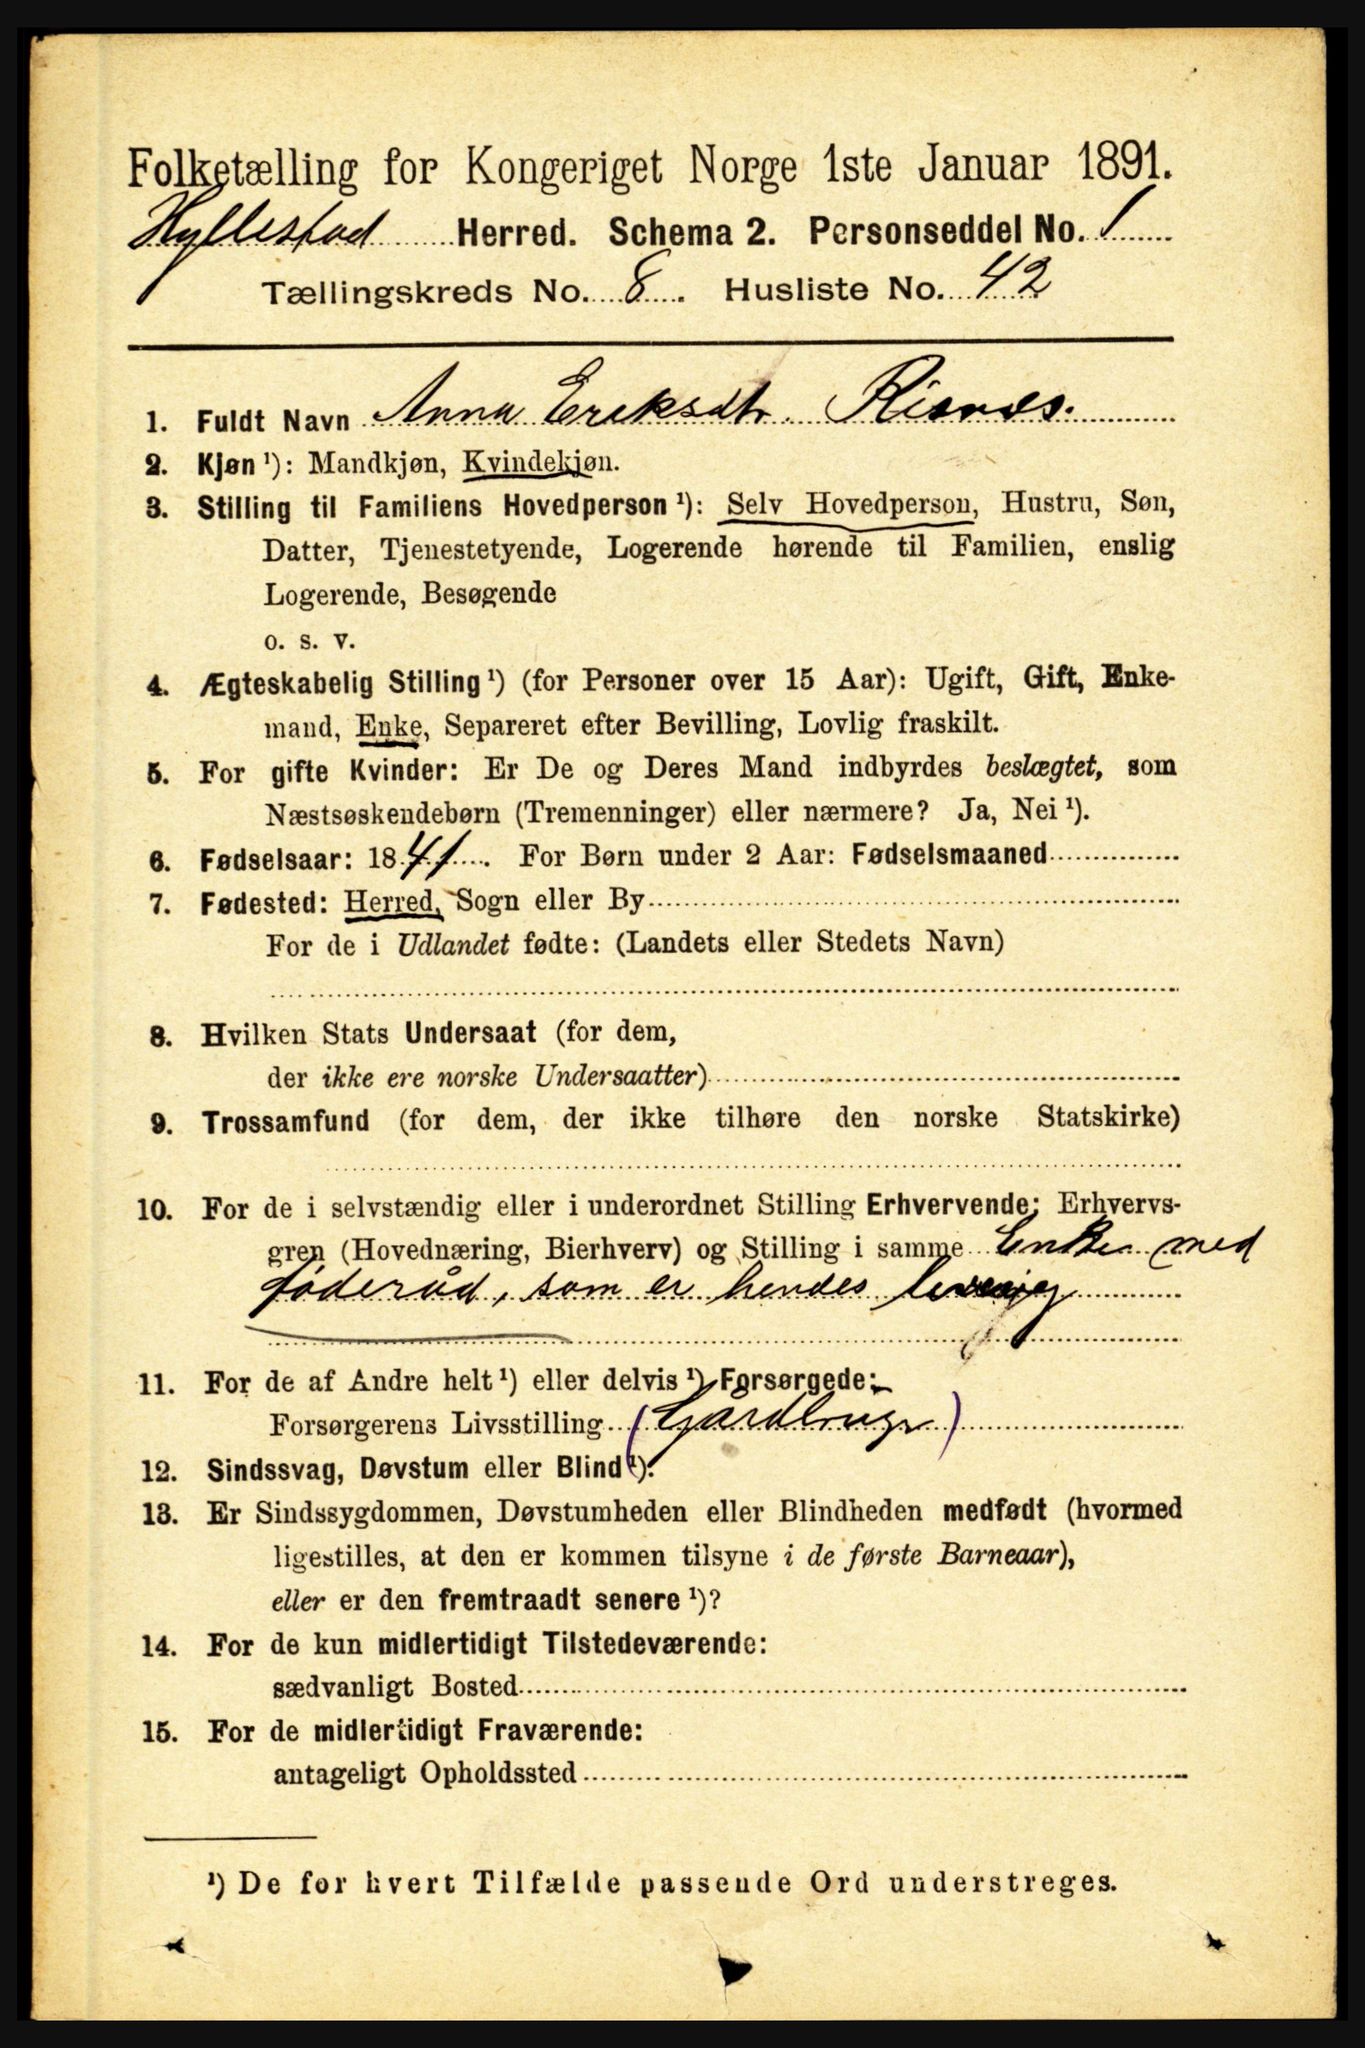 Folketælling for Kongeriget Norge 1ste Januar 1891.
Hyllestad Herred. Schema 2. Personseddel No. 1
Tællingskreds No. 8. Husliste No. 42
1. Fuldt Navn Anna Eriksdtr. Risnes.
2. Kjøn ¹): Mandkjøn, Kvindekjøn.
3. Stilling til Familiens Hovedperson ¹): Selv Hovedperson, Hustru, Søn,
Datter, Tjenestetyende, Logerende hørende til Familien, enslig
Logerende, Besøgende
o. s. v.
4. Ægteskabelig Stilling ¹) (for Personer over 15 Aar): Ugift, Gift, Enke-
mand, Enke, Separeret efter Bevilling, Lovlig fraskilt.
5. For gifte Kvinder: Er De og Deres Mand indbyrdes beslægtet, som
Næstsøskendebørn (Tremenninger) eller nærmere? Ja, Nei ¹).
6. Fødselsaar: 1841. For Børn under 2 Aar: Fødselsmaaned
7. Fødested: Herred, Sogn eller By
For de i Udlandet fødte: (Landets eller Stedets Navn)
8. Hvilken Stats Undersaat (for dem,
der ikke ere norske Undersaatter)
9. Trossamfund (for dem, der ikke tilhøre den norske Statskirke)
10. For de i selvstændig eller i underordnet Stilling Erhvervende: Erhvervs-
gren (Hovednæring, Bierhverv) og Stilling i samme Enke med
føderåd, som er hendes
11. For de af Andre helt ¹) eller delvis ¹) Forsørgede:
Forsørgerens Livsstilling (Gårdbruger)
12. Sindssvag, Døvstum eller Blind ¹).
13. Er Sindssygdommen, Døvstumheden eller Blindheden medfødt (hvormed
ligestilles, at den er kommen tilsyne i de første Barneaar),
eller er den fremtraadt senere ¹)?
14. For de kun midlertidigt Tilstedeværende:
sædvanligt Bosted
15. For de midlertidigt Fraværende:
antageligt Opholdssted
¹) De for hvert Tilfælde passende Ord understreges.